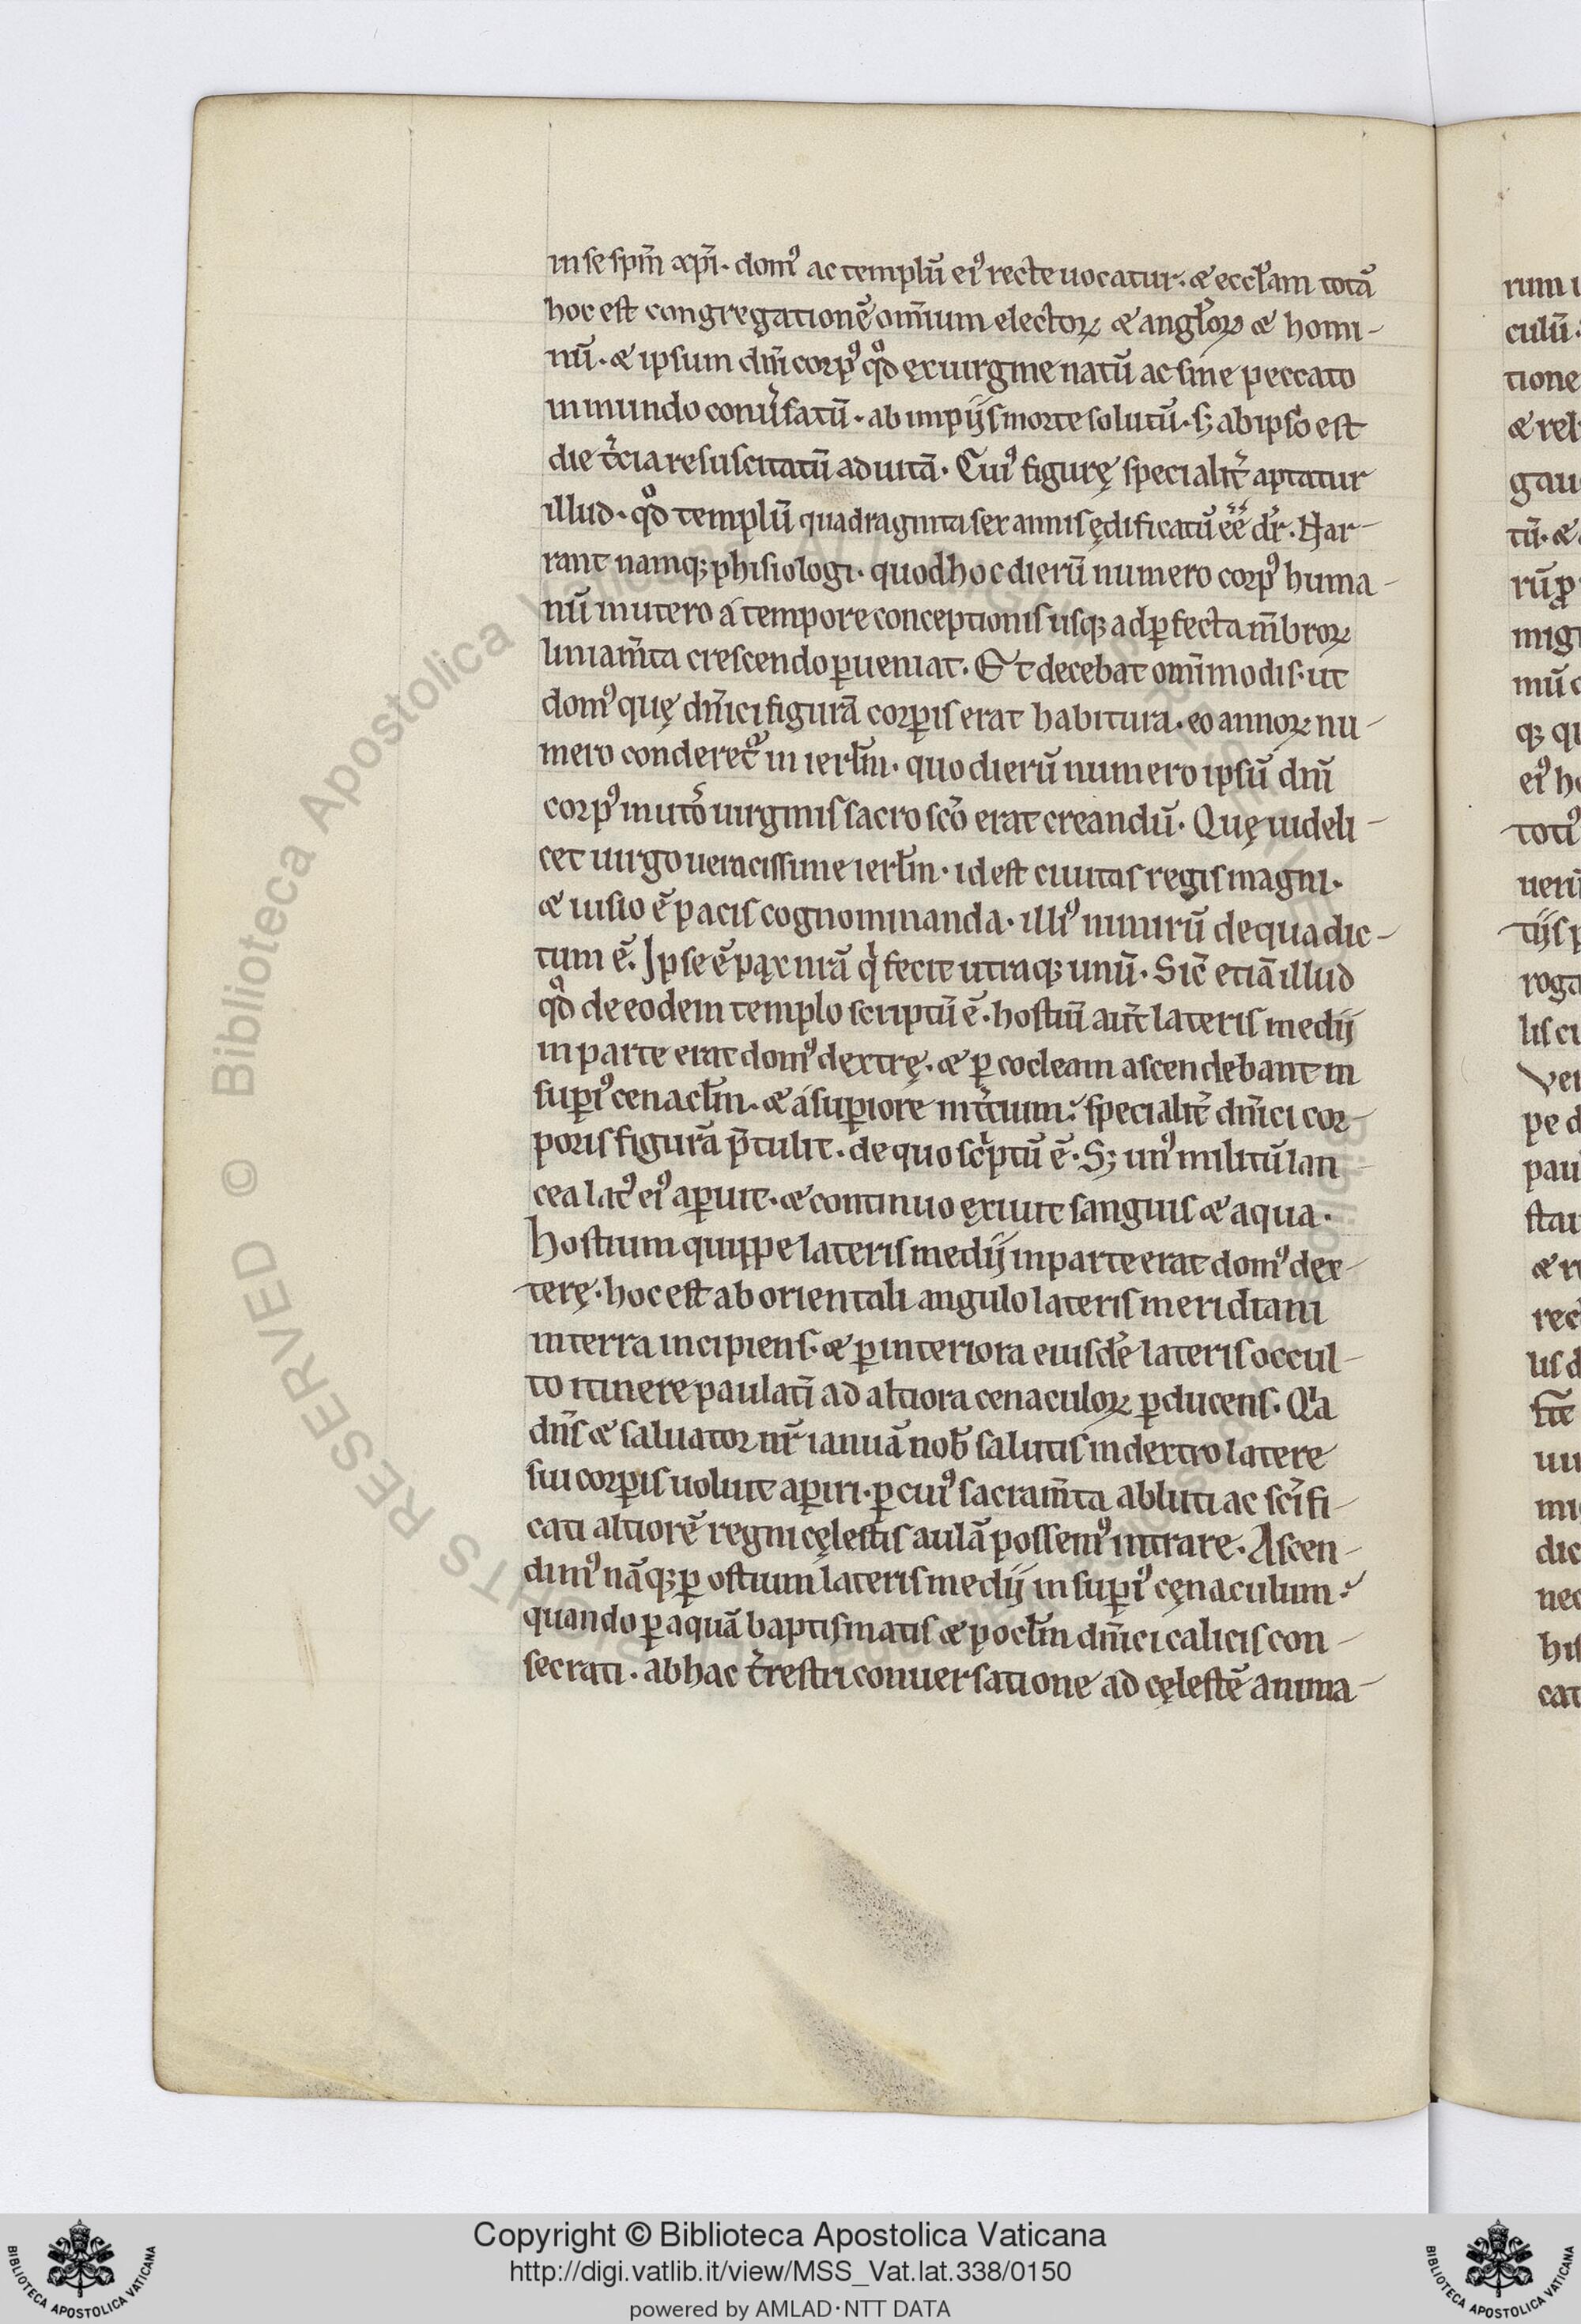 in se spm̃ xp̃i· domꝰ ac templū eiꝰ recte uocatur· æ eccl̃am totā
hoc est congregationē om̃ium electoꝝ æ angl̃oꝝ æ homi-
nū· æ ipsum dn̄i corpꝰ qd̾ ex uirgine natū ac sine peccato
in mundo conũsatū· ab impijs morte solutū· sꝫ ab ipso est
die t̃cia resuscitatū ad uitā· Cuiꝰ figurę specialit̃ aptatur
illud· qd̾ templū quadraginta sex annis ędificatū ēē dr̃· Nar-
rant namqꝫ phisiologi· quod hoc dierū numero corpꝰ huma-
nū in utero a tempore conceptionis usqꝫ ad ꝑfecta mb̃roꝝ
liniam̃ta crescendo ꝑueniat· Et decebat om̃imodis· ut
domꝰ quę dn̄ici figurā corꝑis erat habitura· eo annoꝝ nu-
mero conderet᷑ in ierl̃m· quo dierū numero ipsū dn̄i
corpꝰ in ut̃o uirginis sacro sc̃o erat creandū· Quę uideli-
cet uirgo ueracissime ierl̃m· id est ciuitas regis magni·
æ uisio ē pacis cognominanda· illiꝰ nimirū de qua dic-
tum ē· Ipse ē pax nr̃a qͥ fecit utraqꝫ unū· Sic̃ etiā illud
qd̾ de eodem templo scriptū ē· hostiū aut̃ lateris medij
in parte erat domꝰ dextrę· æ ꝑ cocleam ascendebant in
suꝑiꝰ cenacl̃m· æ a suꝑiore in t̃cium: specialit̃ dn̄ici cor-
poris figurā p̄tulit· de quo scͥptū ē· Sꝫ unꝰ militū lan-
cea latꝰ eiꝰ aꝑuit· æ continuo exiuit sanguis æ aqua·
Hostium quippe lateris medij in parte erat domꝰ dex-
terę· hoc est ab orientali angulo lateris meridiani
in terra incipiens· æ ꝑ interiora eiusdē lateris occul-
to itinere paulatī ad altiora cenaculoꝝ ꝑducens· Qͥa
dn̄s æ saluator nr̃ ianuā nob̃ salutis in dextro latere
sui corꝑis uoluit aꝑiri· ꝑ cuiꝰ sacram̃ta abluti ac sc̃ifi-
cati altiorē regni cęlestis aulā possemꝰ intrare· Ascen-
dimꝰ nāqꝫ ꝑ ostium lateris medij in suꝑiꝰ cęnaculum:
quando ꝑ aquā baptismatis æ pocl̃m dn̄ici calicis con-
secrati· ab hac t̃restri conuersatione ad cęlestē anima-
© Biblioteca Apostolica Vaticana
RIGHTS RESERVED
Copyright © Biblioteca Apostolica Vaticana
http://digi.vatlib.it/view/MSS_Vat.lat.338/0150
powered by AMLAD·NTT DATA
BIBLIOTECA APOSTOLICA VATICANA
BIBLIOTECA APOSTOLICA VATICANA